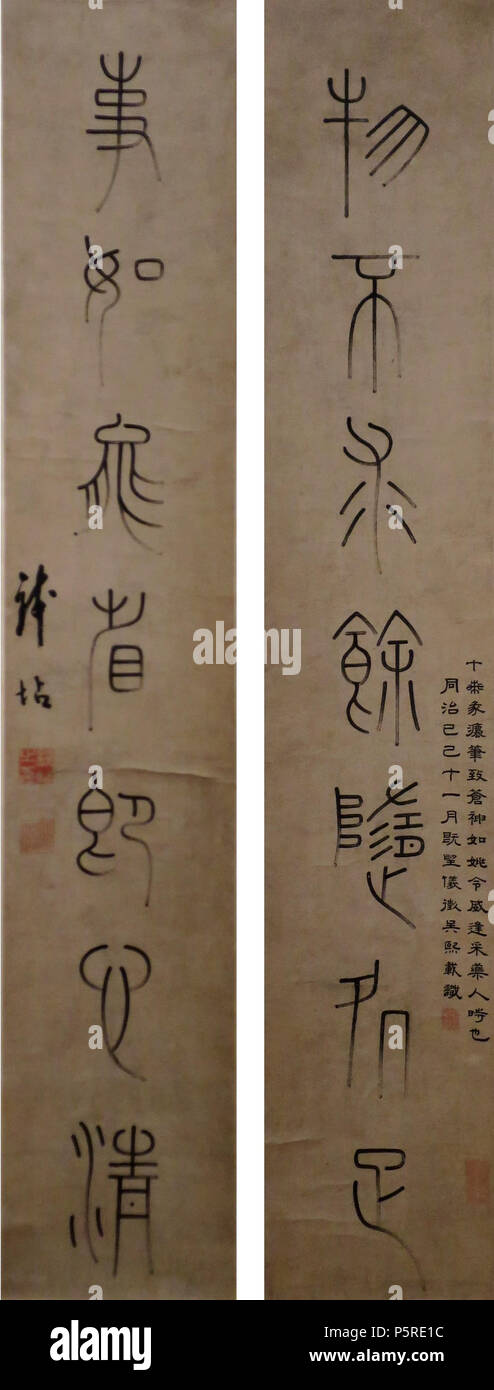 物不求餘隨処足
十篆筆致蒼神如姚令威逢采藥人時也
同治己巳十一月既望儀徵吳熙載識
事如省即心清
錢坫
alamy
alamy
Image ID: P5RE1C
www.alamy.com